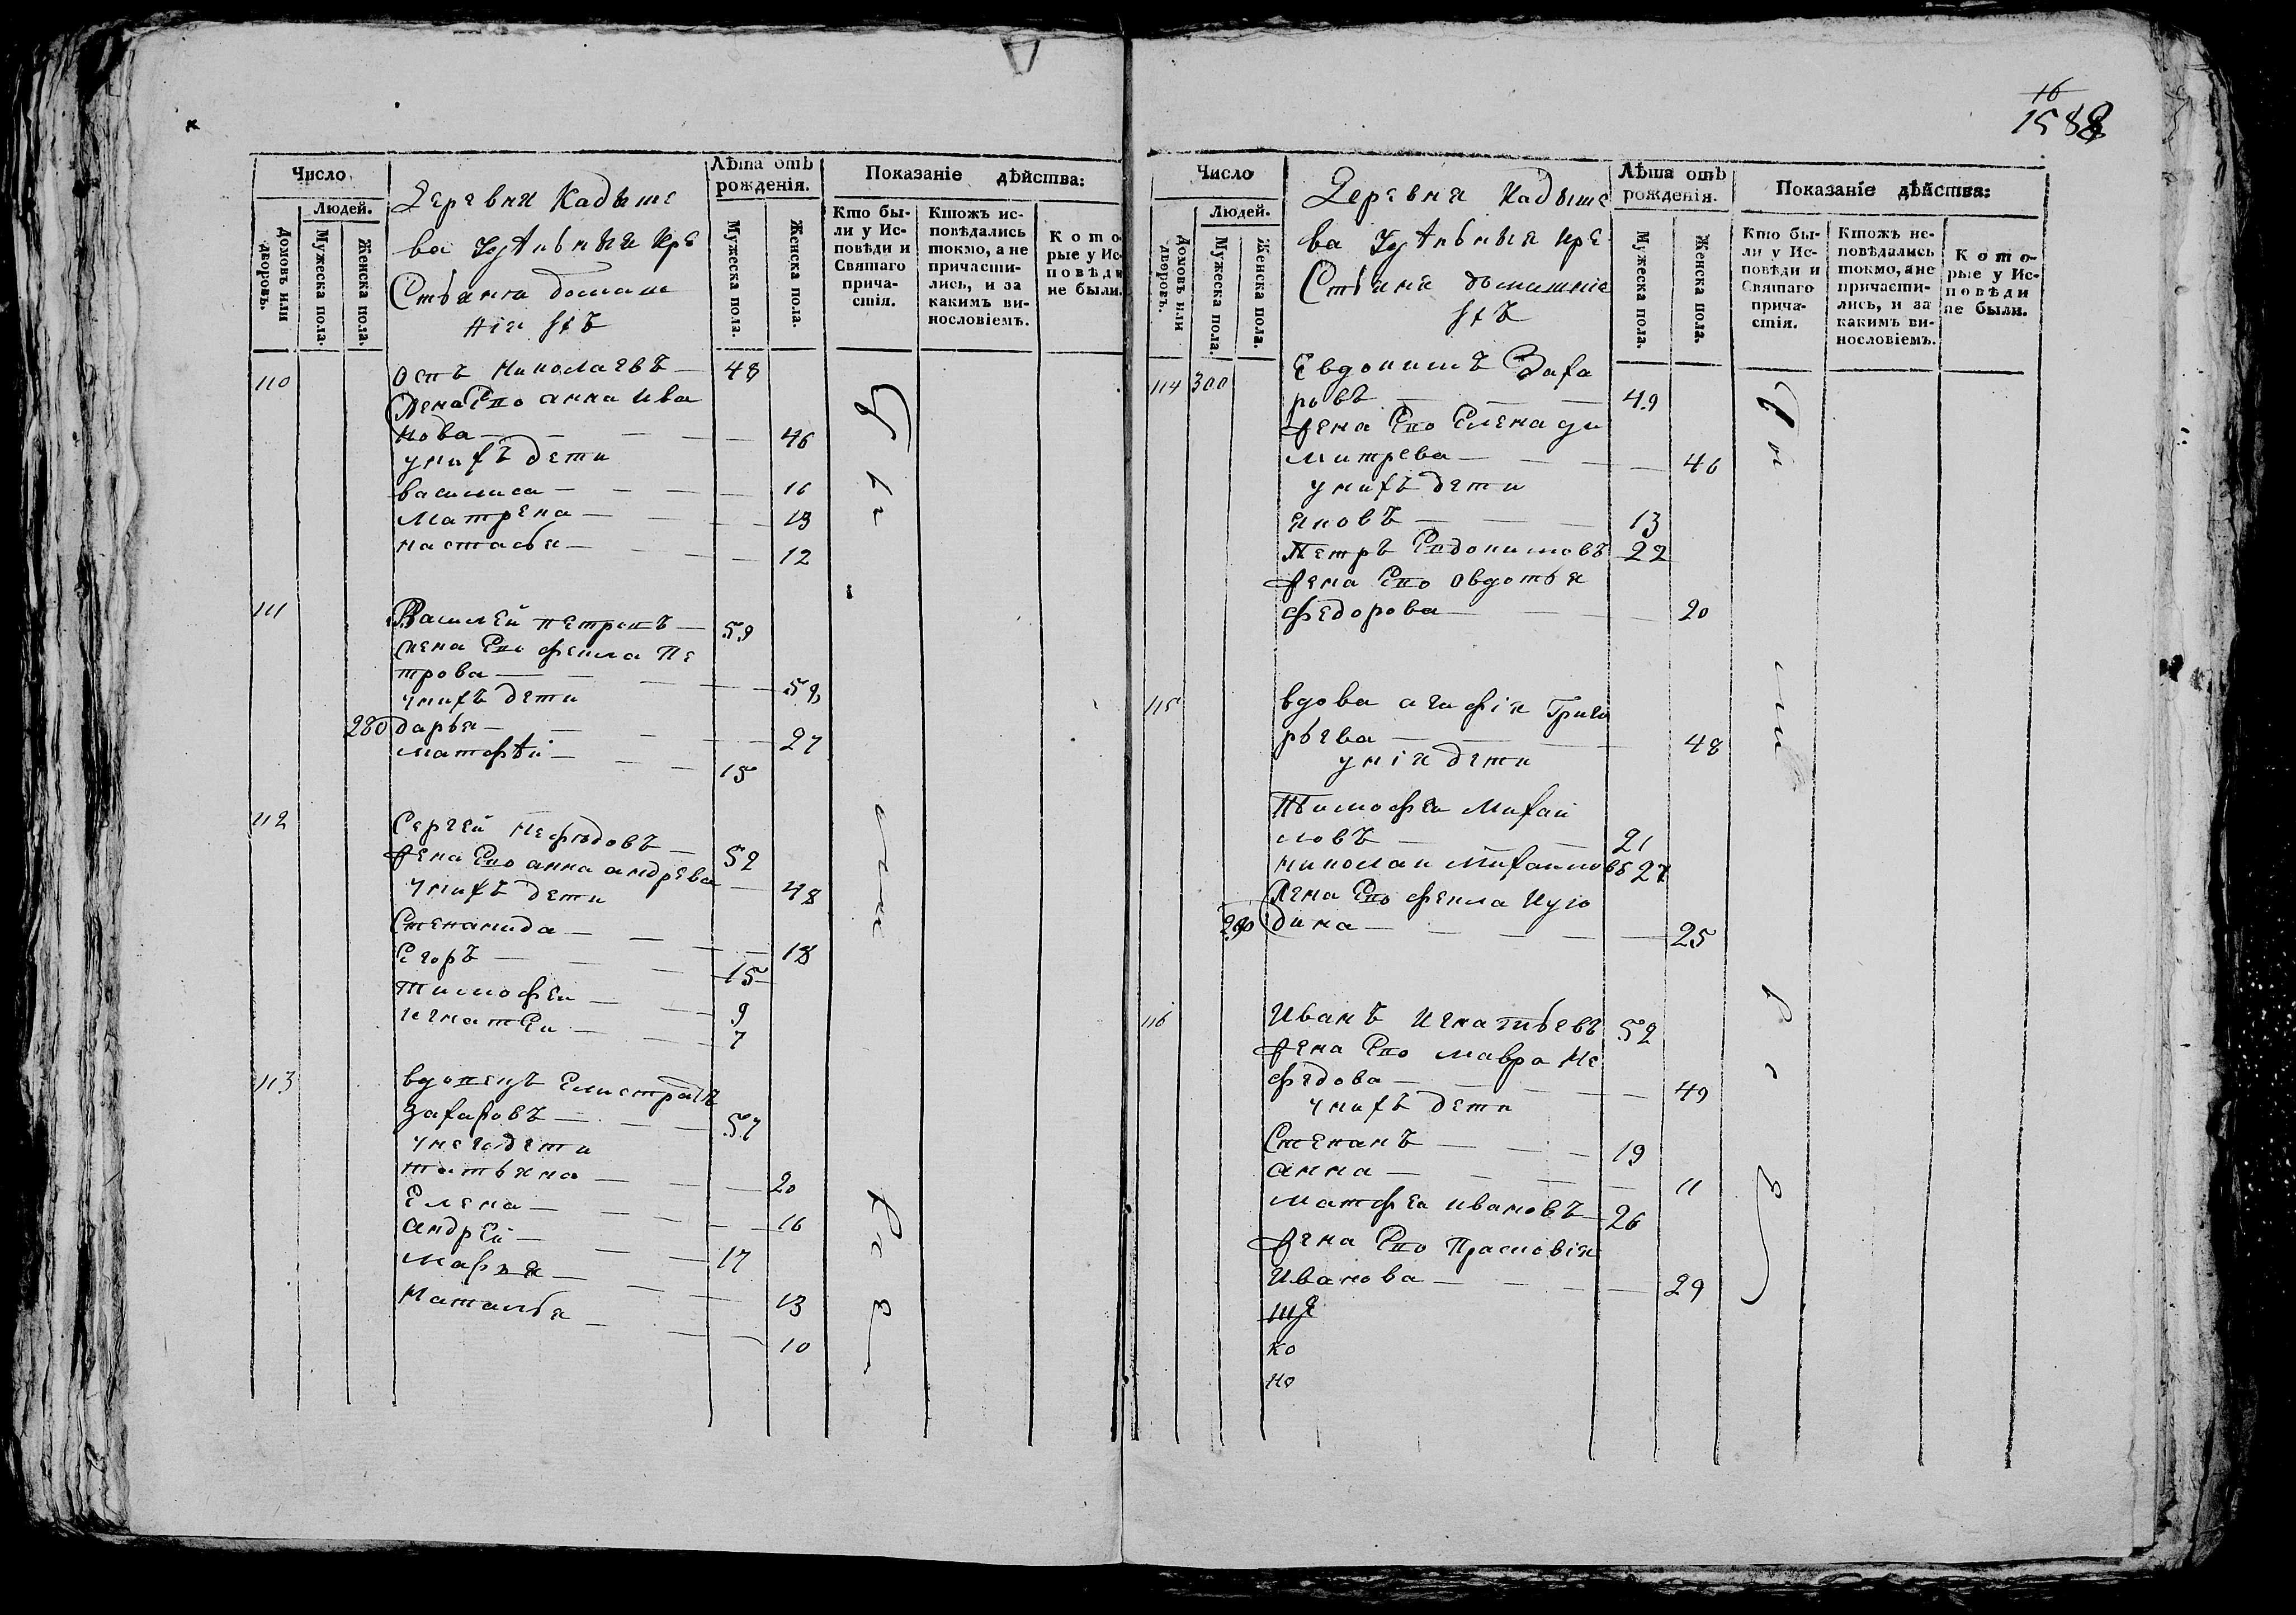 16
1588
Число
Людей.
Домовъ или дворовъ.
Мужеска пола.
Женска пола.
Деревни Кадыше
ва удѣльныя кре
стьяня домаш
нія ихъ
Лѣта отъ рожденія.
Мужеска пола.
Женска пола.
Показаніе дѣйства:
Кто бы-
ли у Ис-
повѣди и
Святаго
прича-
стія.
Ктожъ ис-
повѣдались
токмо, а не
причасти-
лись, и за
какимъ ви-
нословіемъ.
Кото-
рые у Ис-
повѣди
не были.
110 Осипъ Николаевъ — 48
Жена Его анна Ива
нова — 46
у нихъ дети
василиса — 16
Матрена — 13
настасья — 12
111 Василей петровъ — 59
жена Его фекла Пе
трова — 58
у нихъ дети
280 дарья — 27
матфѣй — 15
112 Сергей Нефедовъ — 52
жена Его анна андрева — 48
у нихъ дети
Степанида — 18
Егоръ — 15
тимофеи — 9
игнатеи — 7
113 вдовецъ Елистратъ
Захаровъ — 57
у него дети
татьяна — 20
Елена — 16
андрей — 17
марья — 13
Наталья — 10
Число
Людей.
Домовъ или дворовъ.
Мужеска пола.
Женска пола.
Деревня Кадыше
ва удѣльныя кре
стьяня домашніе
ихъ
Лѣта отъ рожденія.
Мужеска пола.
Женска пола.
Показаніе дѣйства:
Кто бы-
ли у Ис-
повѣди и
Святаго
прича-
стія.
Ктожъ ис-
повѣдались
токмо, а не
причасти-
лись, и за
какимъ ви-
нословіемъ.
Кото-
рые у Ис-
повѣди
не были.
114 300 Евдокимъ Заха
ровъ — 49
жена Его Елена ди
митрева — 46
у нихъ дети
яковъ — 13
Петръ Евдокимовъ 22
жена Его овдотья
федорова — 20
115 вдова агафія Григо
рьева — 48
у нія дети
Тимофеи Михаи
ловъ — 21
николаи михаиловъ 27
Жена Его фекла Ию
290 дина — 25
116 Иванъ Игнатьевъ 52
жена Его мавра Не
федова — 49
у нихъ дети
Степанъ — 19
анна — 11
матфеи ивановъ — 26
жена Его Прасковія
Иванова — 29
ко
но